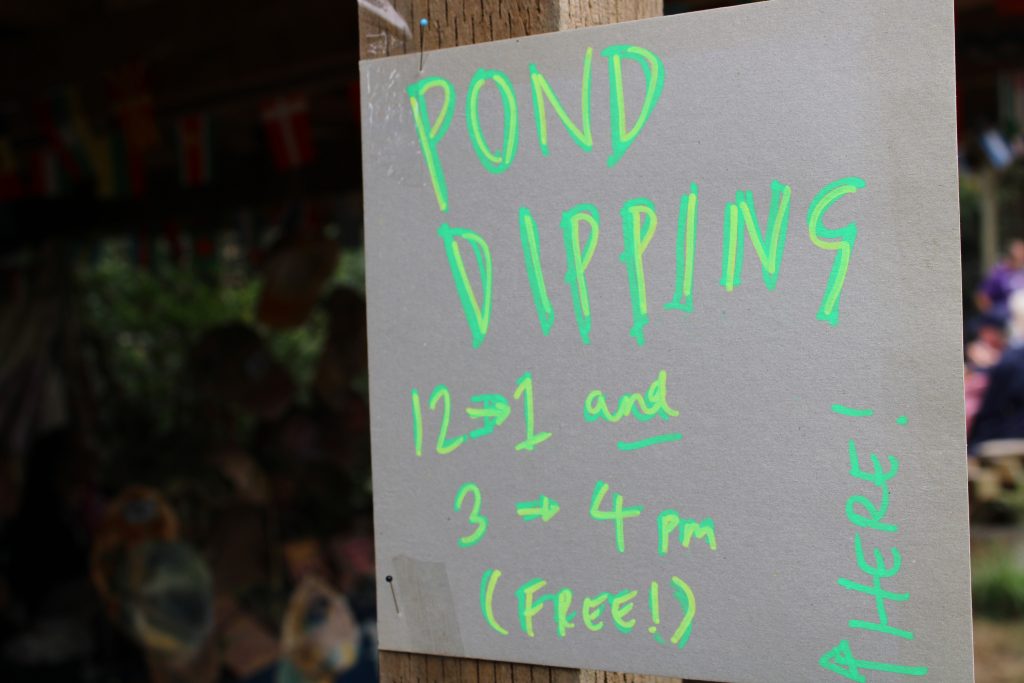 POND
DIPPING
12→1 and
3 → 4 pm
(FREE!)
← HERE!